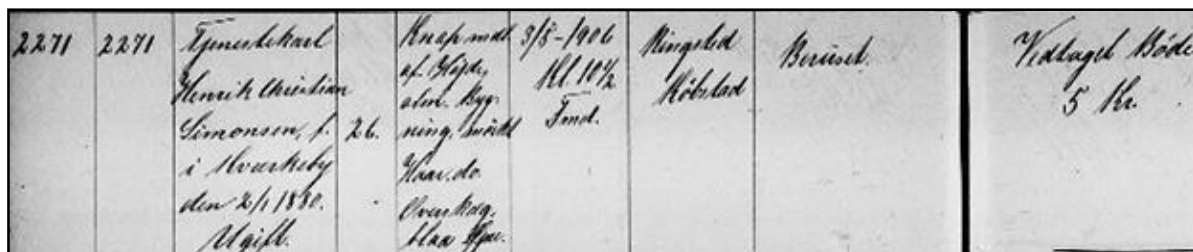 2271
2271
Tjenestekarl
Henrik Christian
Simonsen, f.
i Kværkeby
den 2/1 1880.
Ugift.
26.
Knap midl
af Højde,
alm. Byg-
ning, mørkt
Haar, do.
Overskæg,
blaa Øjne.
3/8-1906
Kl. 10½
Fmd.
Ringsted
Købstad
Beruset.
Vedtaget Bøde
5 Kr.